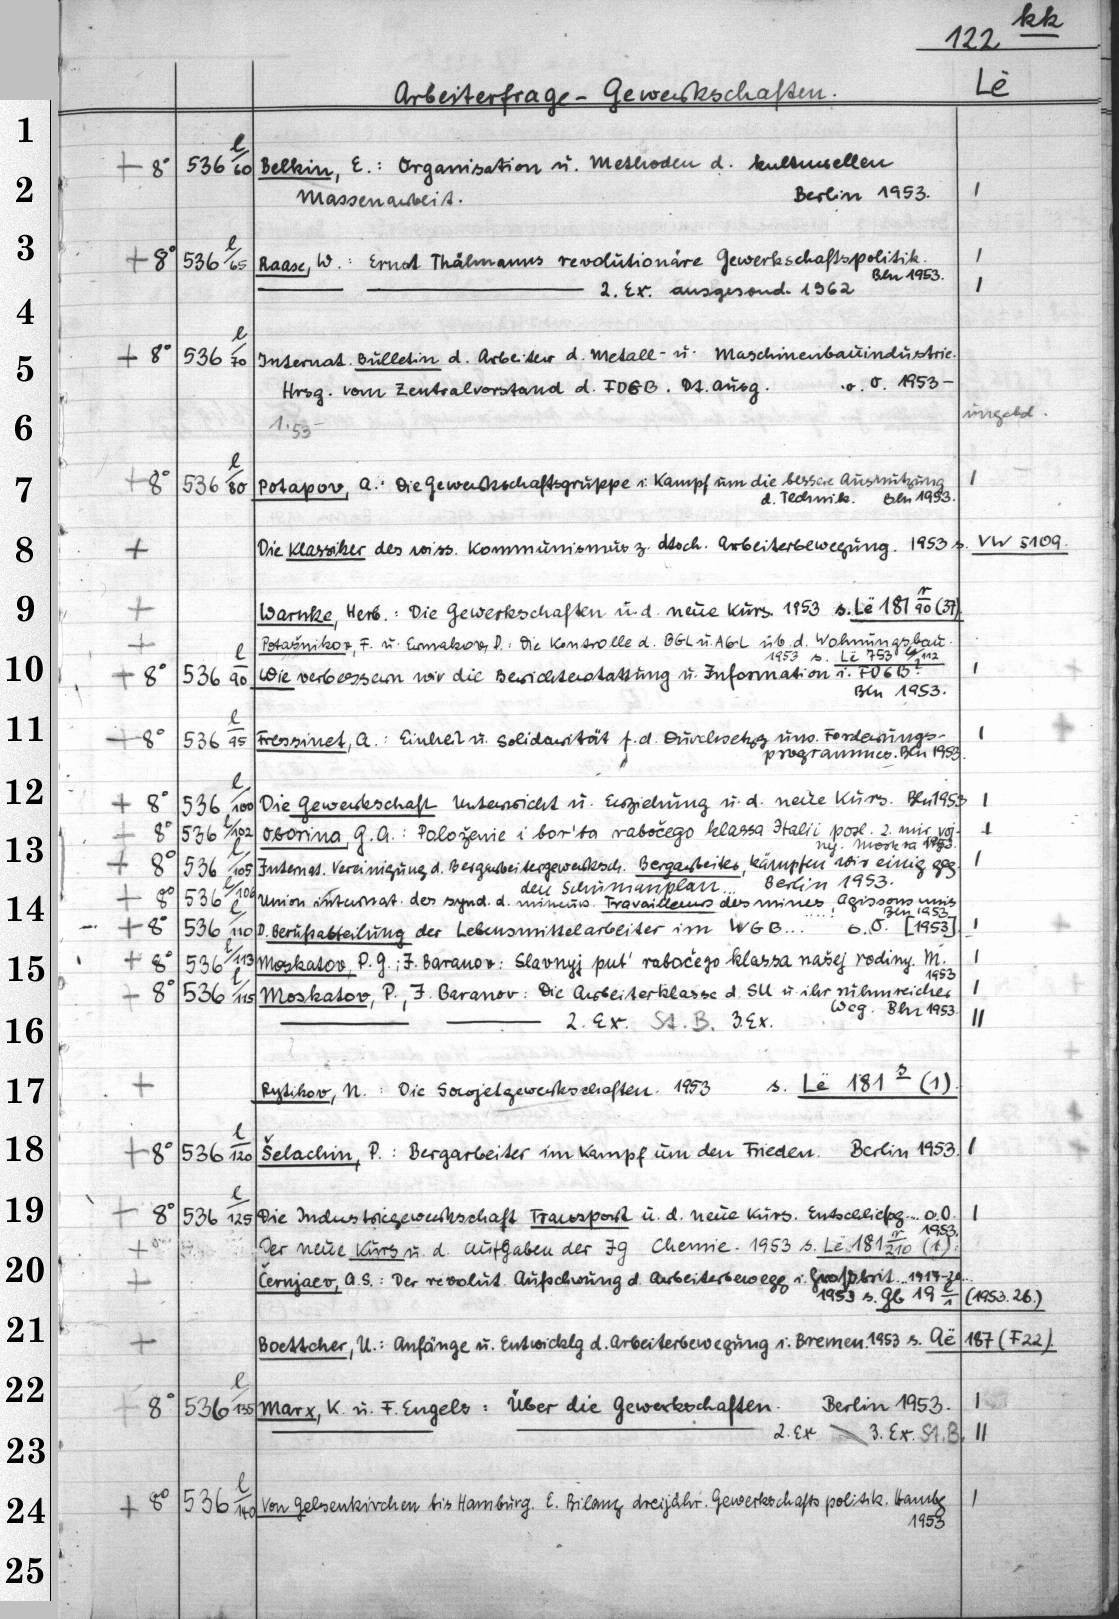 122 kk
Arbeiterfrage - Gewerkschaften. Lë
1
+ 8° 536 l/60 Belkin, E.: Organisation u. Methoden d. kulturellen
2 Massenarbeit. Berlin 1953. I
3 + 8° 536 l/65 Raase, W.: Ernst Thälmanns revolutionäre Gewerkschaftspolitik. I
Bln 1953.
2. Ex. ausgesond. 1962 I
4
5 + 8° 536 l/70 Internat. Bulletin d. Arbeiter d. Metall- u. Maschinenbauindustrie.
Hrsg. vom Zentralvorstand d. FDGB. Dt. Ausg. o. O. 1953 -
6 1.53- ungebd.
7 + 8° 536 l/80 Potapov, A.: Die Gewerkschaftsgruppe i. Kampf um die bessere Ausnützung I
d. Technik. Bln 1953.
8 + Die Klassiker des wiss. Kommunismus z. dtsch. Arbeiterbewegung. 1953 s. VW 5109.
9 + Warnke, Herb.: Die Gewerkschaften u. d. neue Kurs. 1953 s. Lë 181 r/90 (37)
+ Potašnikov, F. u. Ermakov, P.: Die Kontrolle d. BGL u. AGL üb. d. Wohnungsbau.
1953 s. Lë 753 /112
10 + 8° 536 l/90 Wie verbessern wir die Berichterstattung u. Information i. FDGB? I
Bln 1953.
11 + 8° 536 l/95 Fressinet, A.: Einheit u. Solidarität f. d. Durchsetzg uns. Forderungs- I
programmes. Bln 1953.
12 + 8° 536 l/100 Die Gewerkschaft Unterricht u. Erziehung u. d. neue Kurs. Bln 1953 I
+ 8° 536 l/102 Oborina, G.A.: Položenie i bor'ba rabočego klassa Italii posl. 2. mir. voj- I
13 ny. Moskva 1953.
+ 8° 536 l/105 Internat. Vereinigung d. Bergarbeitergewerksch. Bergarbeiter, kämpfen wir einig geg. I
den Schumanplan... Berlin 1953.
14 + 8° 536 l/106 Union internat. des synd. d. mineurs. Travailleurs des mines Agissons unis
....! Bln 1953
+ 8° 536 l/110 D. Berufsabteilung der Lebensmittelarbeiter im WGB... o. O. [1953] I
15 + 8° 536 l/113 Moskatov, P.G.; F. Baranov: Slavnyj put' rabočego klassa našej rodiny. M. I
1953
+ 8° 536 l/115 Moskatov, P., F. Baranov: Die Arbeiterklasse d. SU u. ihr ruhmreicher I
Weg. Bln 1953.
16 2. Ex. St. B. 3. Ex. II
17 + Rytikov, N.: Die Sowjetgewerkschaften. 1953 s. Lë 181 s (1).
18 + 8° 536 l/120 Šelachin, P.: Bergarbeiter im Kampf um den Frieden. Berlin 1953. I
19 + 8° 536 l/125 Die Industriegewerkschaft Transport u. d. neue Kurs. Entschließg... o.O. I
1953.
+ Der neue Kurs u. d. Aufgaben der Ig Chemie. 1953 s. Lë 181 r/210 (1).
20 + Černjaev, A.S.: Der revolut. Aufschwung d. Arbeiterbewegg i. Großbrit. 1917-20..
1953 s. Gb 19 e/1 (1953.26.)
21 + Boettcher, U.: Anfänge u. Entwicklg d. Arbeiterbewegung i. Bremen. 1953 s. Aë 187 (F22).
22 + 8° 536 l/135 Marx, K. u. F. Engels: Über die Gewerkschaften. Berlin 1953. I
23 2. Ex 3. Ex. St. B. II
24 + 8° 536 l/140 Von Gelsenkirchen bis Hamburg. E. Bilanz dreijähr. Gewerkschaftspolitik. Hambg I
1953
25